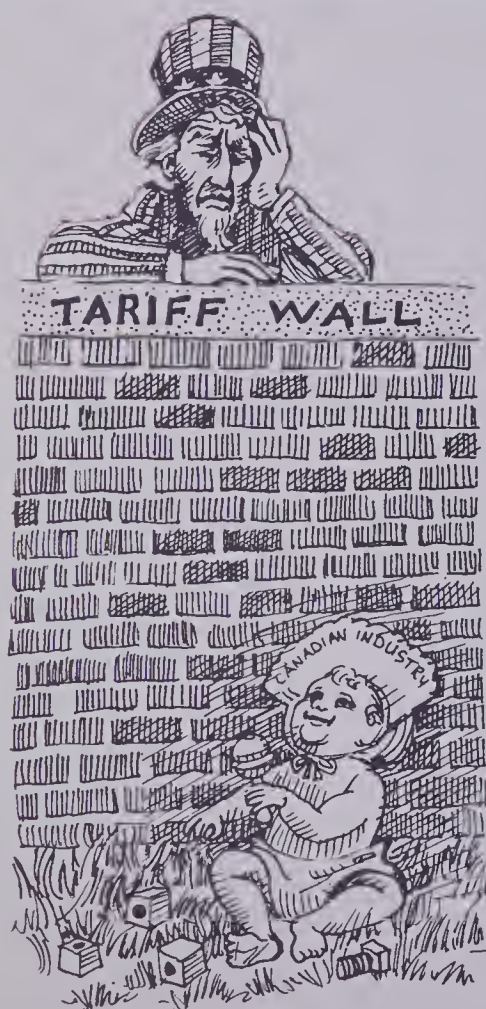 TARIFF WALL
CANADIAN INDUSTRY